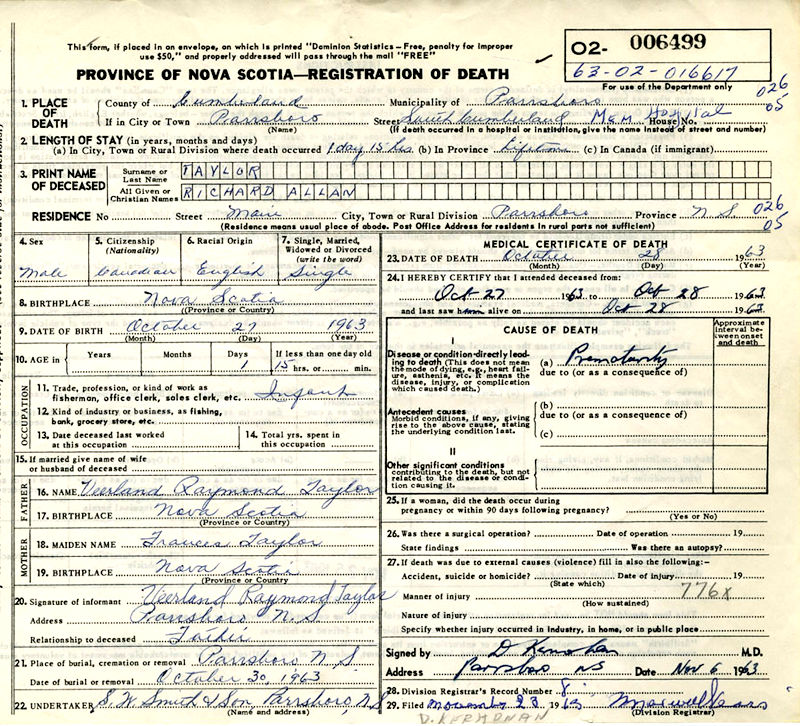 This form, if placed in an envelope, on which is printed "Dominion Statistics - Free, penalty for improper
use $50," and properly addressed will pass through the mail "FREE"
O2- 006499
63-02-016617
PROVINCE OF NOVA SCOTIA—REGISTRATION OF DEATH
For use of the Department only
1. PLACE OF DEATH
County of Cumberland Municipality of Parrsboro 026
05
If in City or Town Parrsboro Street South Cumberland Mem Hospital House No.
(Name) (If death occurred in a hospital or institution, give the name instead of street and number)
2. LENGTH OF STAY (in years, months and days)
(a) In City, Town or Rural Division where death occurred 1 day 15 hrs. (b) In Province Lifetime (c) In Canada (if immigrant)
3. PRINT NAME OF DECEASED
Surname or Last Name TAYLOR
All Given or Christian Names RICHARD ALLAN
RESIDENCE No Street Main City, Town or Rural Division Parrsboro Province N.S. 026
05
(Residence means usual place of abode. Post Office Address for residents in rural parts not sufficient)
4. Sex
Male
5. Citizenship (Nationality)
Canadian
6. Racial Origin
English
7. Single, Married, Widowed or Divorced (write the word)
Single
8. BIRTHPLACE Nova Scotia
(Province or Country)
9. DATE OF BIRTH October 27 1963
(Month) (Day) (Year)
10. AGE in Years Months Days 1 If less than one day old 15 hrs. or min.
OCCUPATION
11. Trade, profession, or kind of work as fisherman, office clerk, sales clerk, etc. Infant
12. Kind of industry or business, as fishing, bank, grocery store, etc.
13. Date deceased last worked at this occupation
14. Total yrs. spent in this occupation
15. If married give name of wife or husband of deceased
FATHER
16. NAME Veerland Raymond Taylor
17. BIRTHPLACE Nova Scotia
(Province or Country)
MOTHER
18. MAIDEN NAME Frances Taylor
19. BIRTHPLACE Nova Scotia
(Province or Country)
20. Signature of informant Veerland Raymond Taylor
Address Parrsboro N.S
Relationship to deceased Father
21. Place of burial, cremation or removal Parrsboro N.S
Date of burial or removal October 30, 1963
22. UNDERTAKER S. W. Smith & Son, Parrsboro, N.S
(Name and address)
MEDICAL CERTIFICATE OF DEATH
23. DATE OF DEATH October 28 1963
(Month) (Day) (Year)
24. I HEREBY CERTIFY that I attended deceased from:
Oct 27 1963 to Oct 28 1963
and last saw h alive on Oct 28 1963
CAUSE OF DEATH
Approximate interval between onset and death
I
Disease or condition directly leading to death (This does not mean the mode of dying, e.g., heart failure, asthenia, etc. It means the disease, injury, or complication which caused death.)
(a) Prematurity
due to (or as a consequence of)
Antecedent causes
Morbid conditions, if any, giving rise to the above cause, stating the underlying condition last.
(b)
due to (or as a consequence of)
(c)
II
Other significant conditions contributing to the death, but not related to the disease or condition causing it.
25. If a woman, did the death occur during pregnancy or within 90 days following pregnancy?
(Yes or No)
26. Was there a surgical operation? Date of operation 19
State findings Was there an autopsy?
27. If death was due to external causes (violence) fill in also the following:-
Accident, suicide or homicide? Date of injury 19
(State which)
Manner of injury 776x
(How sustained)
Nature of injury
Specify whether injury occurred in industry, in home, or in public place
Signed by D Kernohan M.D.
Address Parrsboro NS Date Nov 6 1963
28. Division Registrar's Record Number 8
29. Filed 23 1963
(Division Registrar)
D. KERNOHAN